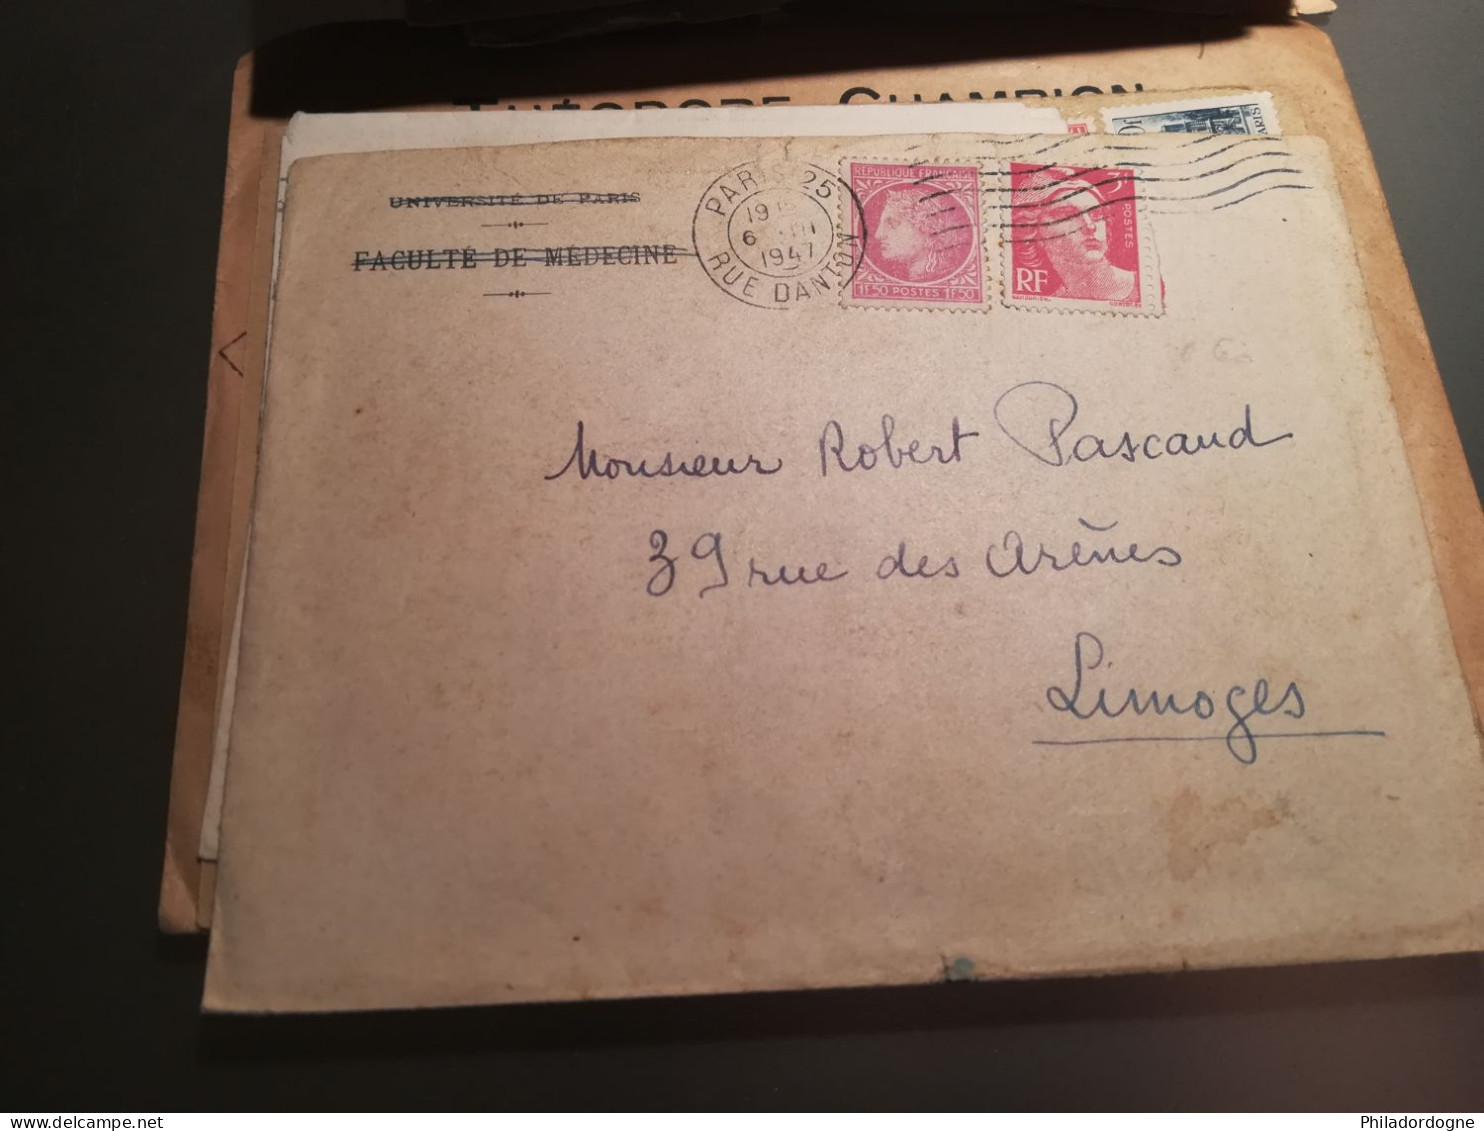 THÉODORE CHAMPION
UNIVERSITÉ DE PARIS
FACULTÉ DE MÉDECINE
PARIS 25
6 1947
RUE DANTON
RÉPUBLIQUE FRANÇAISE
1F50 POSTES 1F50
3F
POSTES
RF
PARIS
Monsieur Robert Pascaud
39 rue des Arènes
Limoges
Philadordogne